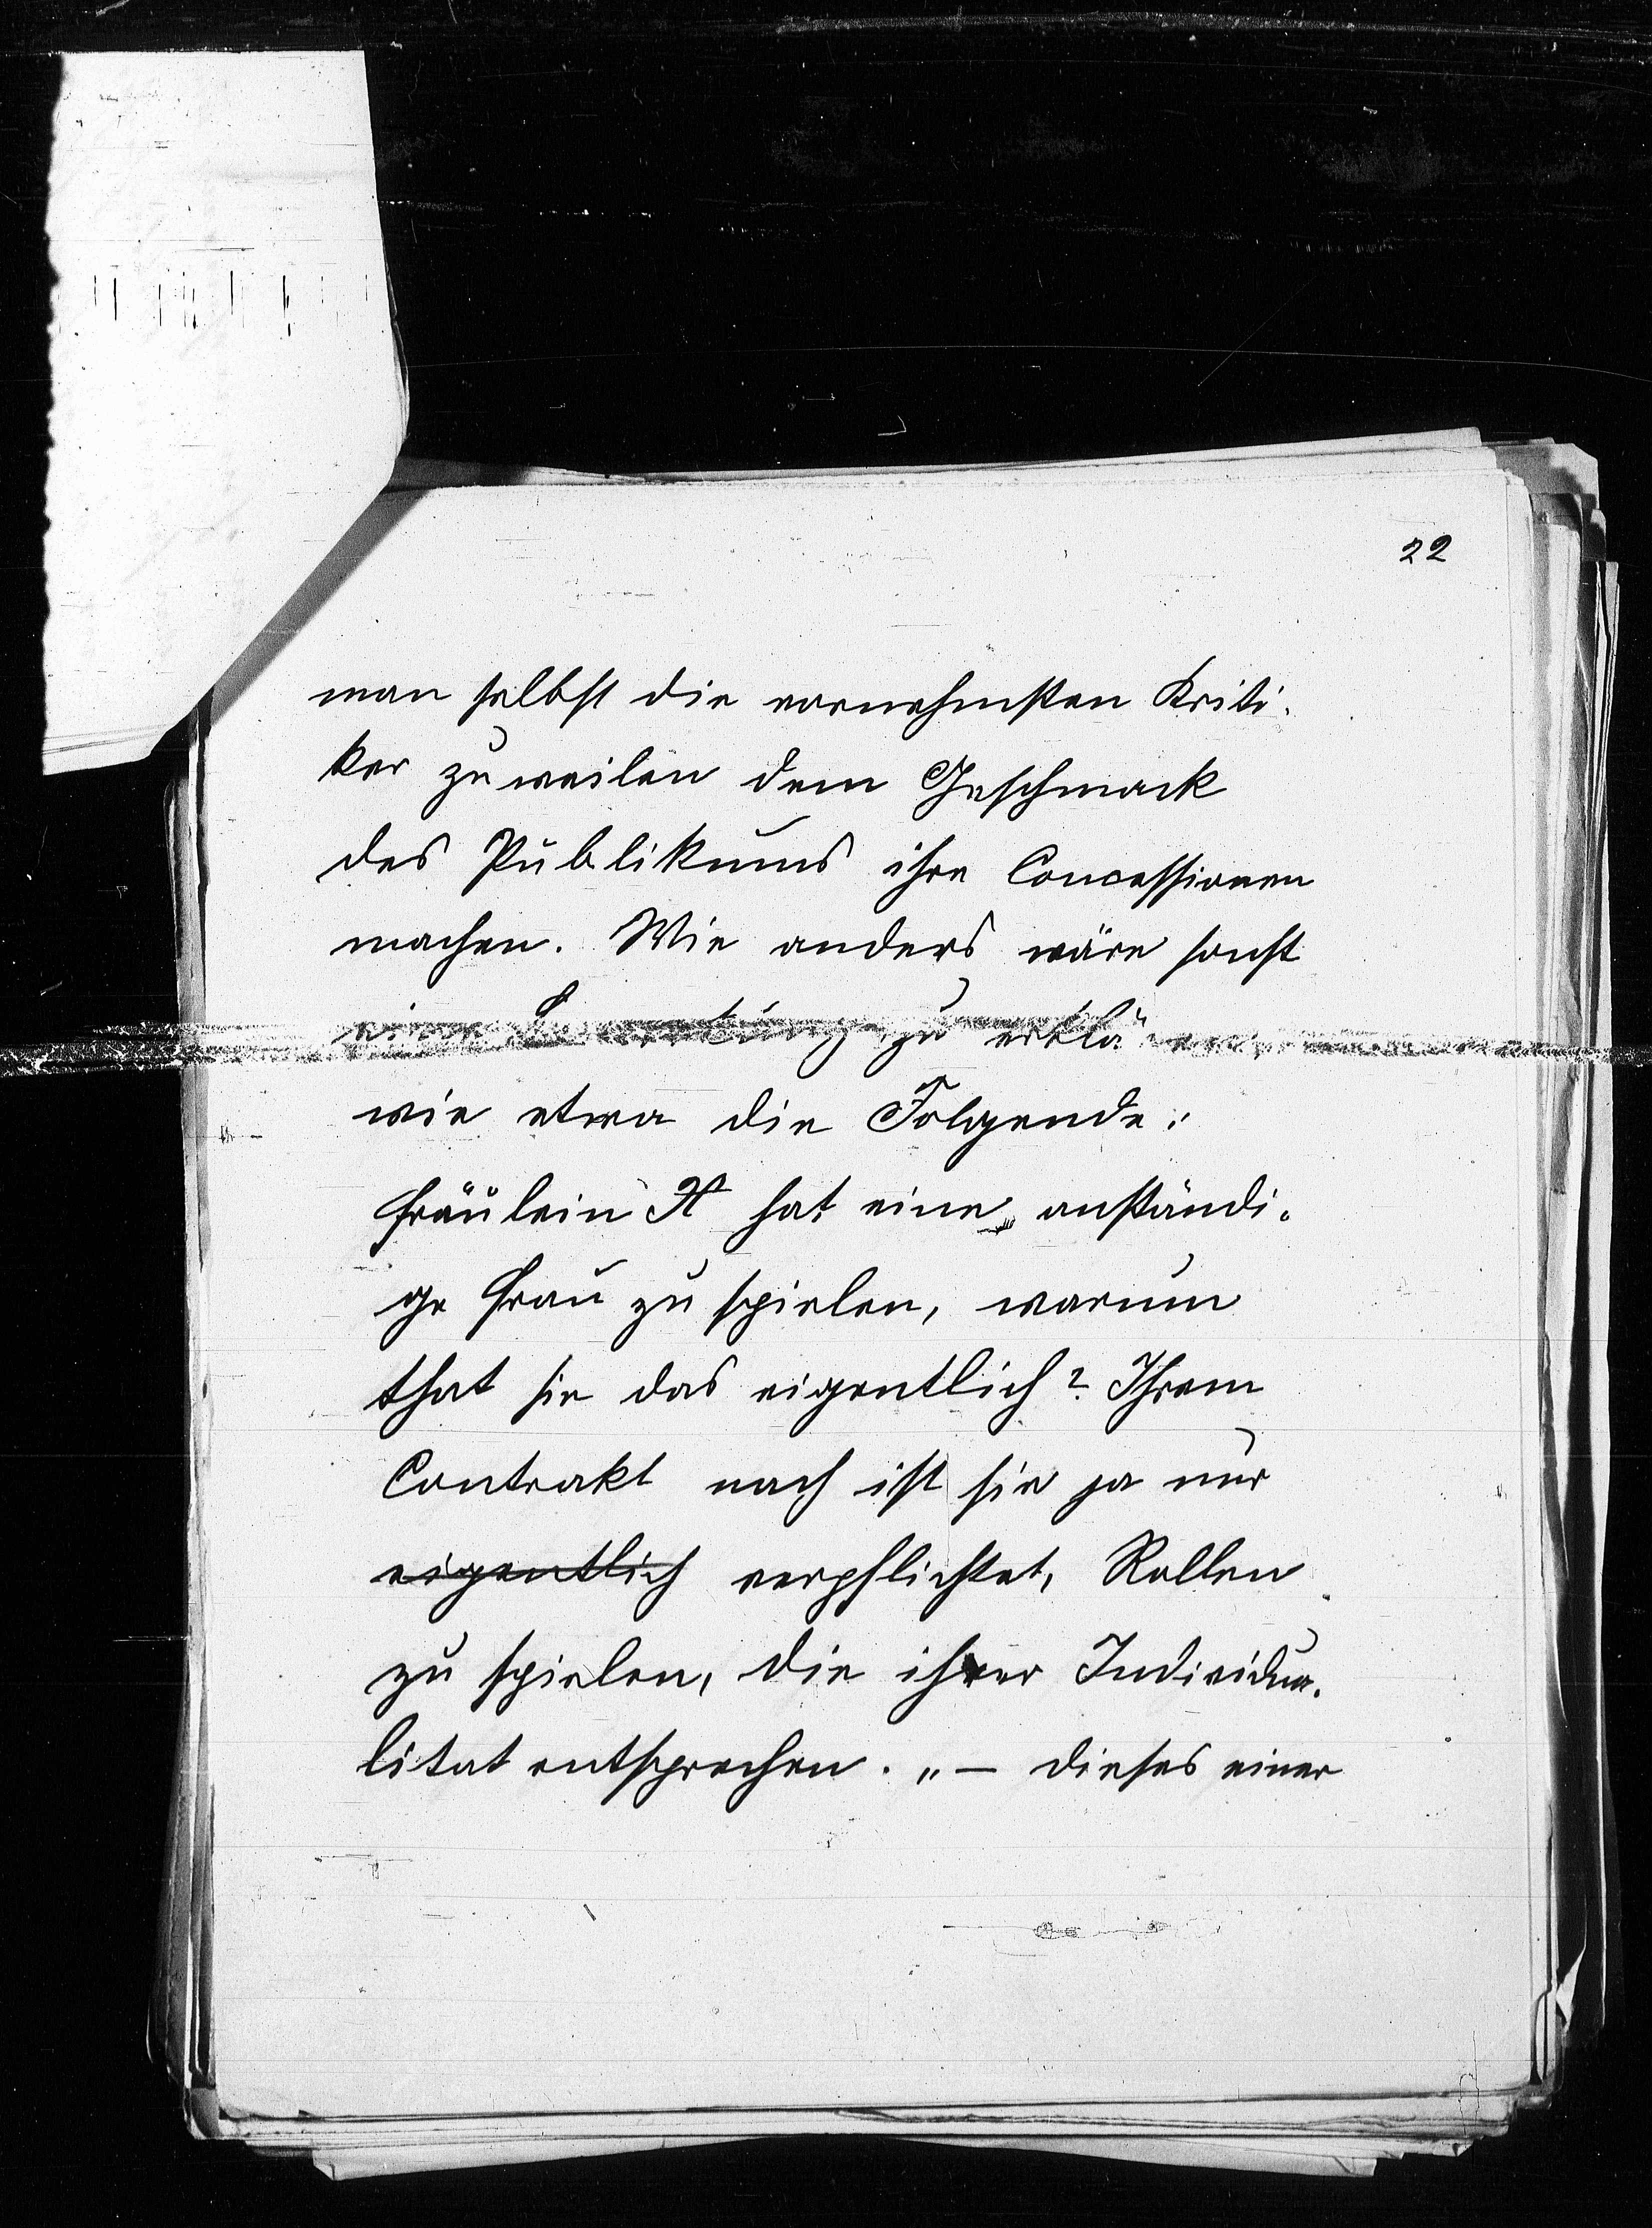 22
man selbst die vornehmsten Kriti-
ker zuweilen dem Geschmack
des Publikums ihre Concessionen
machen. Wie anders wäre sonst
eine zu erklären
wie etwa die Folgende:
Fräulein X hat eine anständi-
ge Frau zu spielen, warum
that sie das eigentlich? Ihrem
Contrakt nach ist sie ja nur
eigentlich verpflichtet, Rollen
zu spielen, die ihrer Individua-
litat entsprechen." — dieses einer